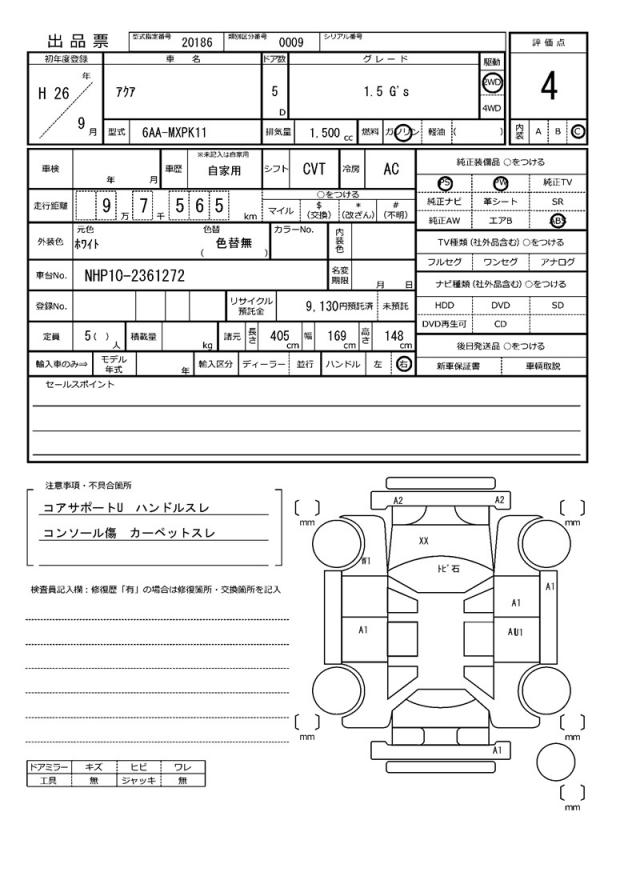 出品票
型式指定番号 20186 類別区分番号 0009 シリアル番号
初年度登録 車名 ドア数 グレード 駆動 評価点
H 26 年 9 月 アクア 5 D 1.5 G's 2WD 4WD 4
型式 6AA-MXPK11 排気量 1.500 cc 燃料 ガソリン 軽油 ( ) 内装 A B C
車検 年 月 車歴 ※未記入は自家用 自家用 シフト CVT 冷房 AC 純正装備品 ○をつける
PS PW 純正TV
走行距離 9 万 7 千 5 6 5 km ○をつける マイル $ (交換) * (改ざん) # (不明) 純正ナビ 革シート SR
純正AW エアB ABS
外装色 元色 ホワイト 色替 ( 色替無 ) カラーNo. 内装色 TV種類 (社外品含む) ○をつける
フルセグ ワンセグ アナログ
車台No. NHP10-2361272 名変期限 月 日 ナビ種類 (社外品含む) ○をつける
登録No. リサイクル預託金 9,130円預託済 未預託 HDD DVD SD
DVD再生可 CD
定員 5( ) 人 積載量 kg 諸元 長さ 405 cm 幅 169 cm 高さ 148 cm 後日発送品 ○をつける
輸入車のみ⇒ モデル年式 年 輸入区分 ディーラー 並行 ハンドル 左 右 新車保証書 車輌取説
セールスポイント
注意事項・不具合箇所
コアサポートU ハンドルスレ
コンソール傷 カーペットスレ
検査員記入欄：修復歴「有」の場合は修復箇所・交換箇所を記入
A2 A2
mm mm
XX
W1 トビ石
A1
A1
A1 AU1
mm mm
A1
mm
ドアミラー キズ ヒビ ワレ
工具 無 ジャッキ 無